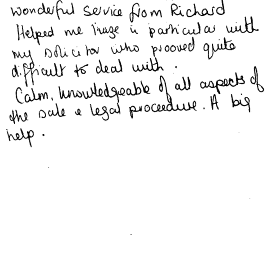 wonderful service from Richard
Helped me huge in particular with
my solicitor who prooved quite
difficult to deal with.
Calm, knowledgeable of all aspects of
the sale & legal proceedure. A big
help.